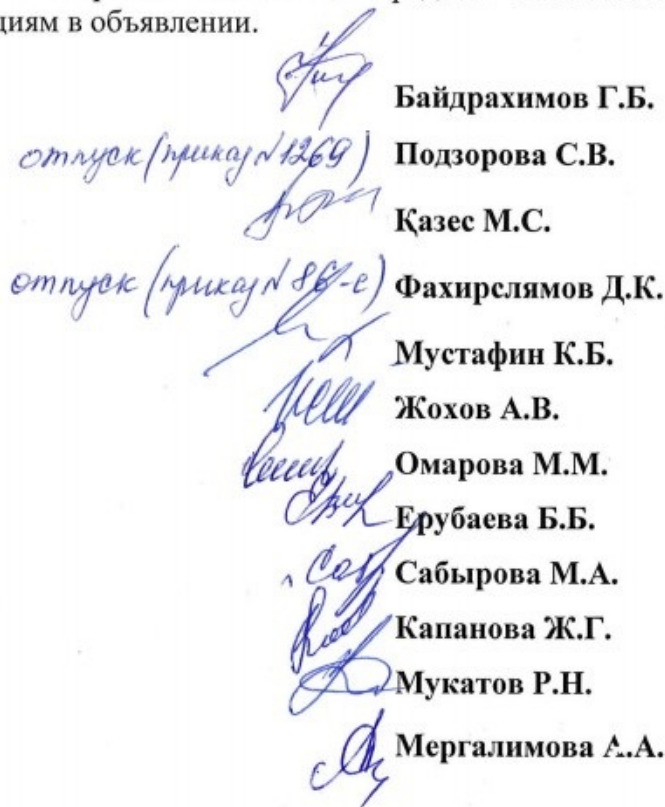 циям в объявлении.
Байдрахимов Г.Б.
отпуск (приказ № 1269) Подзорова С.В.
Қазес М.С.
отпуск (приказ № 86-с) Фахирслямов Д.К.
Мустафин К.Б.
Жохов А.В.
Омарова М.М.
Ерубаева Б.Б.
Сабырова М.А.
Капанова Ж.Г.
Мукатов Р.Н.
Мергалимова А.А.